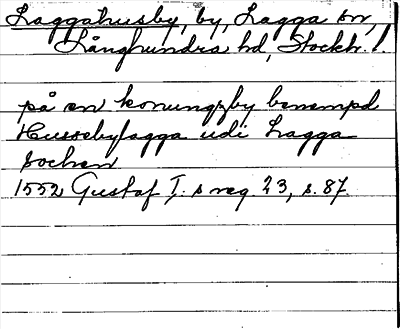 Laggahusby, by, Lagga sn,
Långhundra hd, Stockh. l.
på en konungxby benempd
Hussebylagga udi Lagga
sochen
1552 Gustaf I:s reg. 23, s. 87.